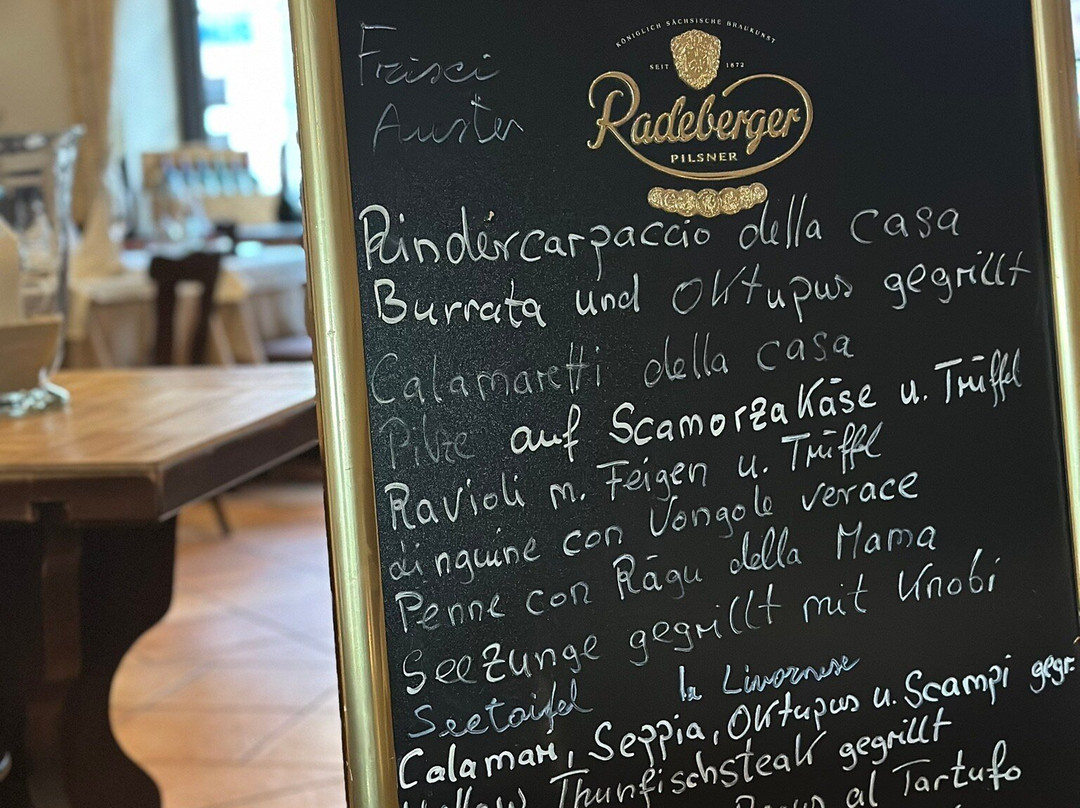 KÖNIGLICH SÄCHSISCHE BRAUKUNST
SEIT 1872
Radeberger
PILSNER
Frisci
Auster
Rindercarpaccio della casa
Burrata und Oktupus gegrillt
Calamaretti della casa
Pilze auf Scamorza Käse u. Trüffel
Ravioli m. Feigen u. Trüffel
Linguine con Vongole verace
Penne con Ragu della Mama
Seezunge gegrillt mit Knobi
Seeteifel la Livornese
Calamari, Seppia, Oktupus u. Scampi gegr.
Thunfischsteak gegrillt
al Tartufo